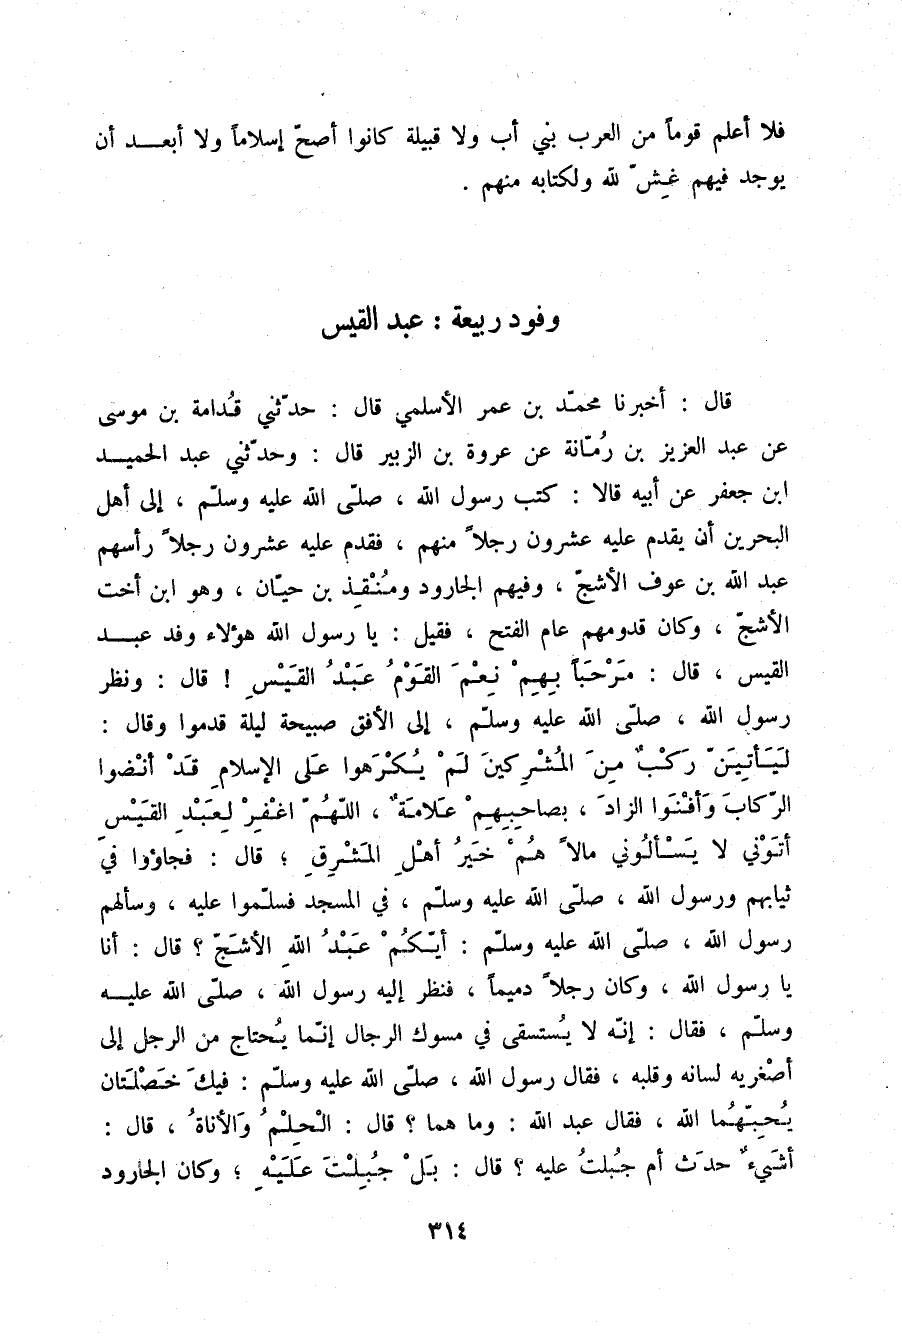 فلا أعلم قوماً من العرب بني أب ولا قبيلة كانوا أصحّ إسلاماً ولا أبعد أن
يوجد فيهم غِشّ لله ولكتابه منهم .
وفود ربيعة : عبد القيس
قال : أخبرنا محمّد بن عمر الأسلمي قال : حدّثني قُدامة بن موسى
عن عبد العزيز بن رُمّانة عن عروة بن الزبير قال : وحدّثني عبد الحميد
ابن جعفر عن أبيه قالا : كتب رسول الله ، صلّى الله عليه وسلّم ، إلى أهل
البحرين أن يقدم عليه عشرون رجلاً منهم ، فقدم عليه عشرون رجلاً رأسهم
عبد الله بن عوف الأشجّ ، وفيهم الجارود ومُنْقِذ بن حيّان ، وهو ابن أخت
الأشجّ ، وكان قدومهم عام الفتح ، فقيل : يا رسول الله هؤلاء وفد عبد
القيس ، قال : مَرْحَباً بِهِمْ نِعْمَ القَوْمُ عَبْدُ القَيْسِ ! قال : ونظر
رسول الله ، صلّى الله عليه وسلّم ، إلى الأفق صبيحة ليلة قدموا وقال :
لَيَأتِيَنّ رَكْبٌ مِنَ المُشْرِكينَ لَمْ يُكْرَهوا عَلى الإسلامِ قَدْ أنْضوا
الرّكابَ وَأفْنَوا الزادَ ، بصاحِبِهِمْ عَلامَةٌ ، اللّهُمّ اغْفِرْ لِعَبْدِ القَيْسِ
أتَوْني لا يَسْألُوني مالاً هُمْ خَيرُ أهْلِ المَشْرِقِ ؛ قال : فجاؤوا في
ثيابهم ورسول الله ، صلّى الله عليه وسلّم ، في المسجد فسلّموا عليه ، وسألهم
رسول الله ، صلّى الله عليه وسلّم : أيّكُمْ عَبْدُ اللهِ الأشَجّ ؟ قال : أنا
يا رسول الله ، وكان رجلاً دميماً ، فنظر إليه رسول الله ، صلّى الله عليه
وسلّم ، فقال : إنّه لا يُستسقى في مسوك الرجال إنّما يُحتاج من الرجل إلى
أصْغريه لسانه وقلبه ، فقال رسول الله ، صلّى الله عليه وسلّم : فيكَ خَصْلَتان
يُحِبّهُما الله ، فقال عبد الله : وما هما ؟ قال : الْحِلْمُ وَالأناةُ ، قال :
أشَيءٌ حدَث أم جُبلتُ عليه ؟ قال : بَلْ جُبِلْتَ عَلَيْهِ ؛ وكان الجارود
٣١٤